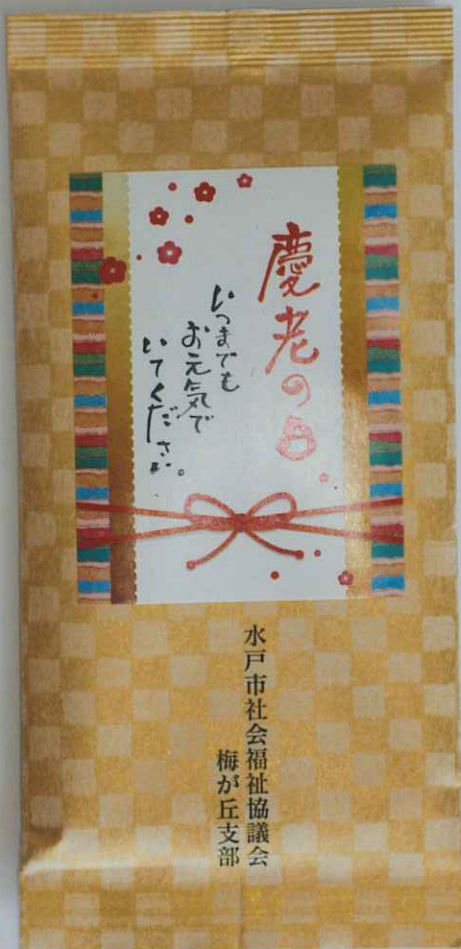 慶老の日
いつまでも
お元気で
いてください。
水戸市社会福祉協議会
梅が丘支部